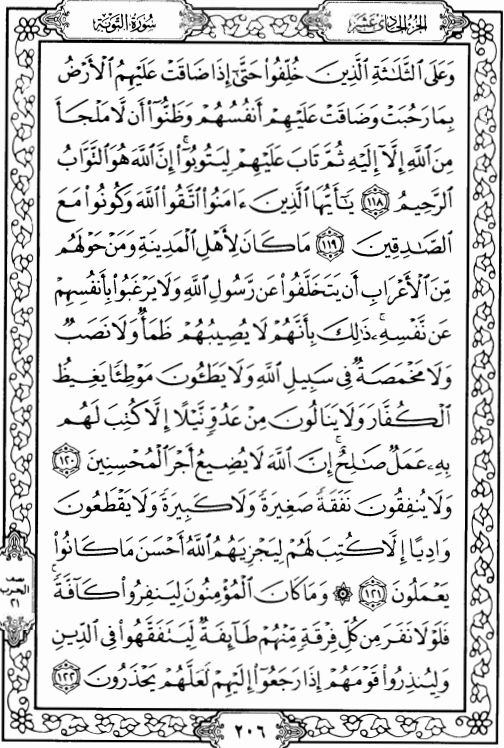 الجزء الحادي عشر
سورة التوبة
وَعَلَى ٱلثَّلَٰثَةِ ٱلَّذِينَ خُلِّفُوا۟ حَتَّىٰٓ إِذَا ضَاقَتْ عَلَيْهِمُ ٱلْأَرْضُ
بِمَا رَحُبَتْ وَضَاقَتْ عَلَيْهِمْ أَنفُسُهُمْ وَظَنُّوٓا۟ أَن لَّا مَلْجَأَ
مِنَ ٱللَّهِ إِلَّآ إِلَيْهِ ثُمَّ تَابَ عَلَيْهِمْ لِيَتُوبُوٓا۟ ۚ إِنَّ ٱللَّهَ هُوَ ٱلتَّوَّابُ
ٱلرَّحِيمُ ١١٨ يَٰٓأَيُّهَا ٱلَّذِينَ ءَامَنُوا۟ ٱتَّقُوا۟ ٱللَّهَ وَكُونُوا۟ مَعَ
ٱلصَّٰدِقِينَ ١١٩ مَا كَانَ لِأَهْلِ ٱلْمَدِينَةِ وَمَنْ حَوْلَهُم
مِّنَ ٱلْأَعْرَابِ أَن يَتَخَلَّفُوا۟ عَن رَّسُولِ ٱللَّهِ وَلَا يَرْغَبُوا۟ بِأَنفُسِهِمْ
عَن نَّفْسِهِۦ ۚ ذَٰلِكَ بِأَنَّهُمْ لَا يُصِيبُهُمْ ظَمَأٌ وَلَا نَصَبٌ
وَلَا مَخْمَصَةٌ فِى سَبِيلِ ٱللَّهِ وَلَا يَطَـُٔونَ مَوْطِئًا يَغِيظُ
ٱلْكُفَّارَ وَلَا يَنَالُونَ مِنْ عَدُوٍّ نَّيْلًا إِلَّا كُتِبَ لَهُم
بِهِۦ عَمَلٌ صَٰلِحٌ ۚ إِنَّ ٱللَّهَ لَا يُضِيعُ أَجْرَ ٱلْمُحْسِنِينَ ١٢٠
وَلَا يُنفِقُونَ نَفَقَةً صَغِيرَةً وَلَا كَبِيرَةً وَلَا يَقْطَعُونَ
وَادِيًا إِلَّا كُتِبَ لَهُمْ لِيَجْزِيَهُمُ ٱللَّهُ أَحْسَنَ مَا كَانُوا۟
يَعْمَلُونَ ١٢١ ۞ وَمَا كَانَ ٱلْمُؤْمِنُونَ لِيَنفِرُوا۟ كَآفَّةً ۚ
فَلَوْلَا نَفَرَ مِن كُلِّ فِرْقَةٍ مِّنْهُمْ طَآئِفَةٌ لِّيَتَفَقَّهُوا۟ فِى ٱلدِّينِ
وَلِيُنذِرُوا۟ قَوْمَهُمْ إِذَا رَجَعُوٓا۟ إِلَيْهِمْ لَعَلَّهُمْ يَحْذَرُونَ ١٢٢
نصف
الحزب
٢١
٢٠٦